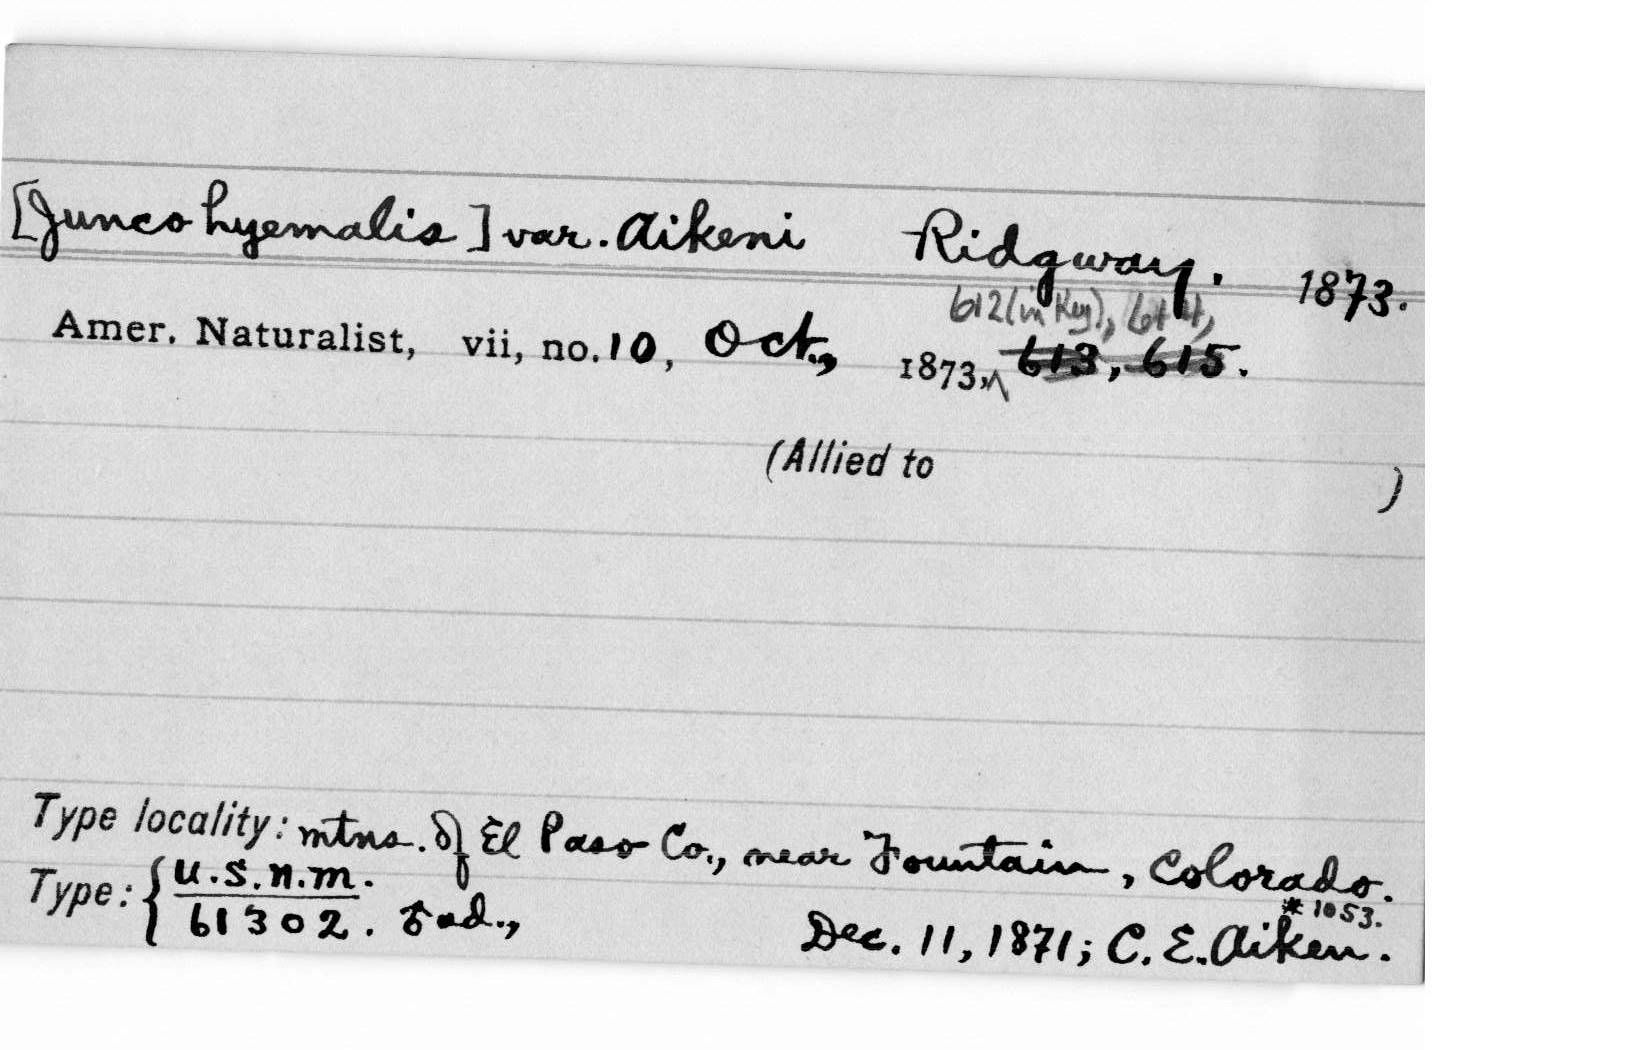 [Junco hyemalis] var. Aikeni Ridgway. 1873.
612 (in Key),
Amer. Naturalist, vii, no. 10, Oct., 1873, 613, 615.
(Allied to )
Type locality: mtns. of El Paso Co., near Fountain, Colorado.
Type: { U.S.N.M. *1053.
61302. ad., Dec. 11, 1871; C. E. Aiken.